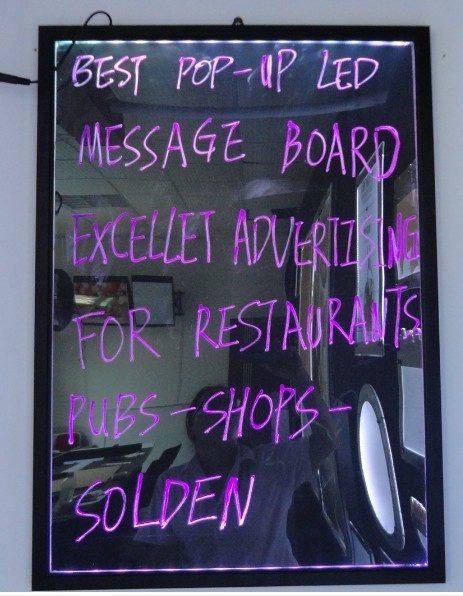 BEST POP-UP LED
MESSAGE BOARD
EXCELLET ADVERTIZSING
FOR RESTAURANTS
PUBS-SHOPS-
SOLDEN